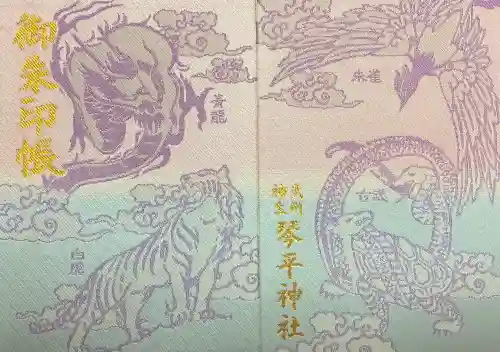 御朱印帳
青龍
白虎
朱雀
玄武
武州
柿生
琴平神社